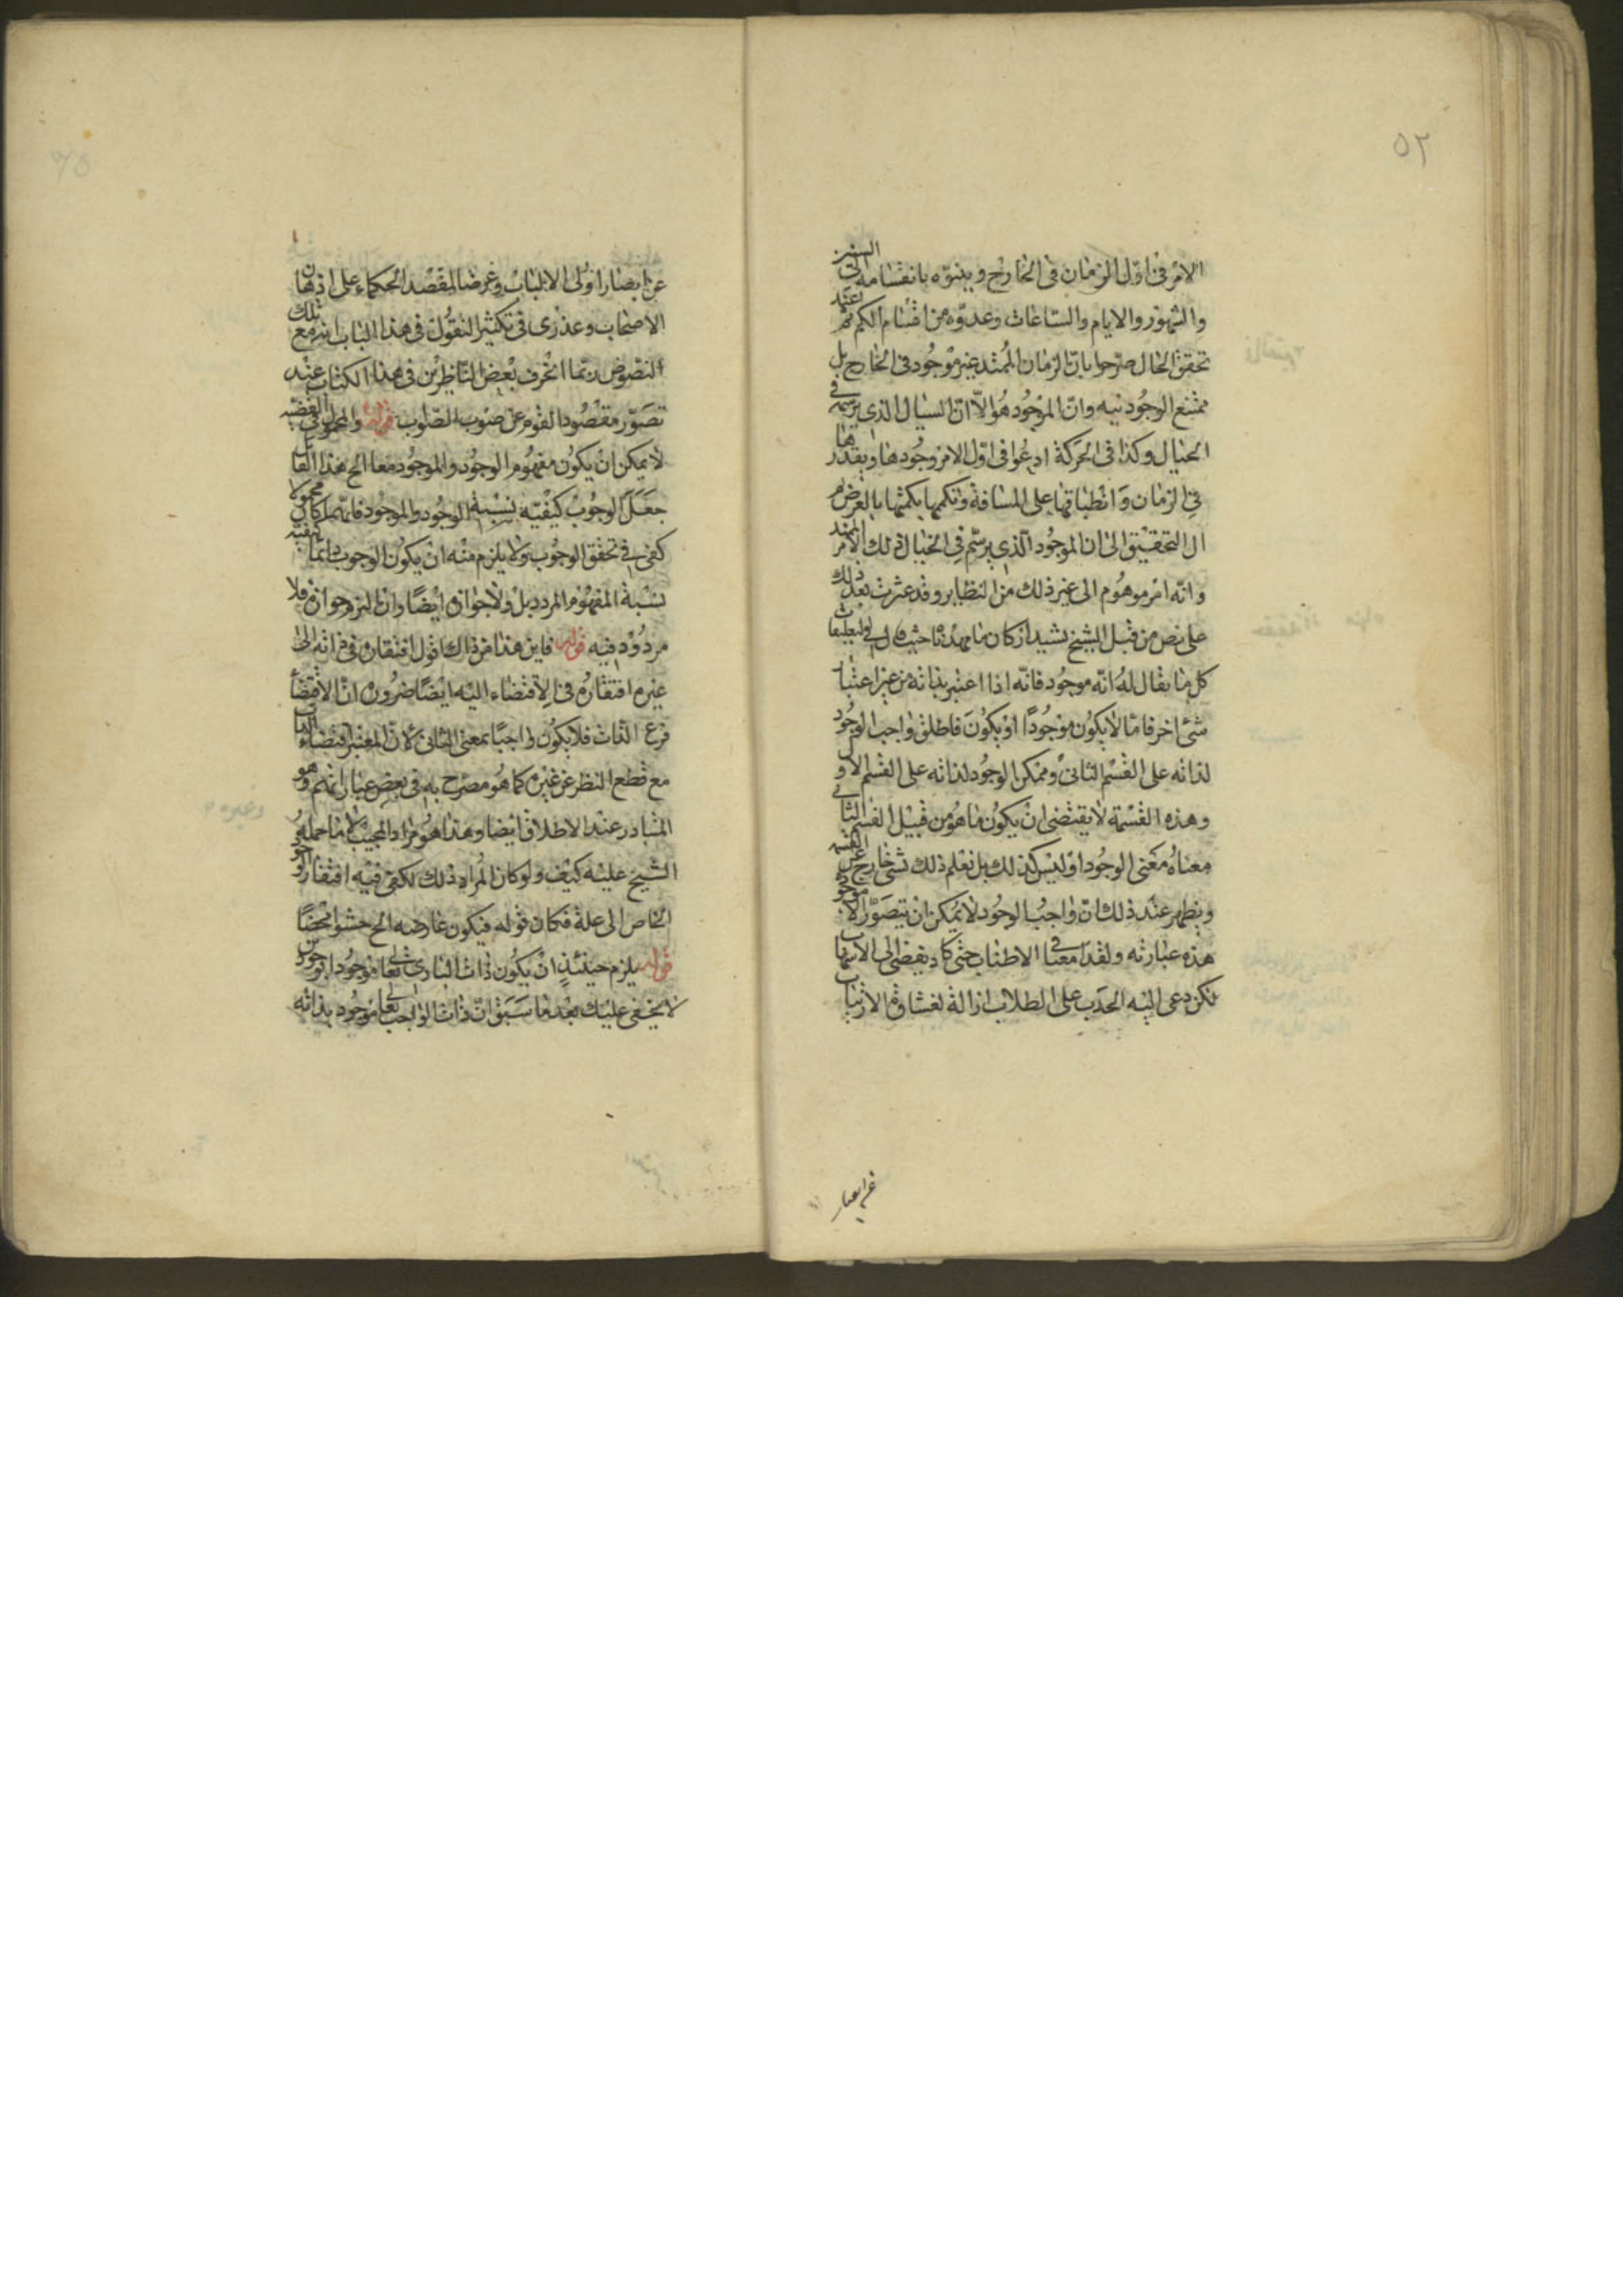 ٥٢
الامر فى اوّل الزمان فى الخارج وبينوّه بانقسامه الى السنين
والشهور والايام والساعات وعدوّه من اقسام الكم ثم عند
تحقق الحال صرّحوا بانّ الزمان الممتد غير موجود فى الخارج بل
ممتنع الوجود فيه وانّ الموجود هو الآن السيال الذى يرسمه فى
الخيال وكذا فى الحركة ادعوا فى اوّل الامر وجودها وبقدرها
فى الزمان وانطباقها على المسافة وتكممها بكميتها بالعرض ثم
ال التحقيق الى ان الموجود الّذى يرسم فى الخيال ذلك الامر الممتد
وانّه امر موهوم الى غير ذلك من النظاير وقد عثرت بعد ذلك
على نص من قبل الشيخ بشيد اركان ما مهدناه حيث قال فى التعليقات
كل ما يقال له انّه موجود فانّه اذا اعتبر بذاته من غير اعتبار
شئ اخر فامّا لا يكون موجودًا او يكون فاطلق واجب الوجود
لذاته على القسم الثانى وممكن الوجود لذاته على القسم الاول
وهذه القسمة لا يقتضى ان يكون ما هو من قبيل القسم الثانى
معناه معنى الوجود او ليس كذلك بل نعلم ذلك بشئ خارج عن القسمة
ويظهر عند ذلك انّ واجب الوجود لا يمكن ان يتصوّر الا موجودًا
هذه عبارته ولقد امعنا فى الاطناب حتى كاد يفضى الى الاسهاب
لكن دعى اليه الحدب على الطلاب ازالة لغشاوة الارتياب
عن ابصار
عن ابصار اولى الالباب وعرضا لمقصد الحكماء على اذهان
الاصحاب وعذرى فى تكثير النقول فى هذا الباب انه مع تلك
النصوص ربّما انحرف بعض الناظرين فى هذا الكتاب عند
تصوّر مقصود القوم عن صوب الصّواب قوله والمحمول فى القضيّة
لا يمكن ان يكون مفهوم الوجود والموجود معا الخ هذا القائل
جعل الوجوب كيفيّة نسبة الوجود والموجود فايّهما كان محمولا
كفى فى تحقق الوجوب ولا يلزم منه ان يكون الوجوب دائما كيفية
نسبة المفهوم المردد بل ولا جوازه ايضًا وان التزم جوازه فلا
مردود فيه قوله فاين هذا من ذاك اقول افتقاره فى ذاته الى
غيره افتقاره فى الاقتضاء اليه ايضًا ضرورة انّ الاقتضاء
فرع الذات فلا يكون واجبًا بمعنى الثانى لانّ المعتبر اقتضاء الذات
مع قطع النظر عن غيره كما هو مصرّح به فى بعض عباراتهم وهو
المتبادر عند الاطلاق ايضا وهذا هو مراد المجيب لا ما حمله
الشيخ عليه كيف ولو كان المراد ذلك لكفى فيه افتقار الوجود
الخاص الى علة فكان قوله فيكون عارضه الخ حشوا محضًا
قوله يلزم حينئذٍ ان يكون ذات البارى تعالى موجودا بوجودين
لا يخفى عليك بعد ما سبق انّ ذات الواجب تعالى موجود بذاته